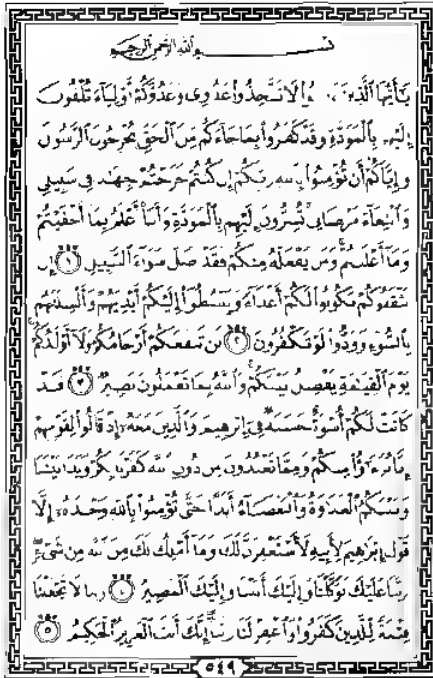 بِسْمِ اللَّهِ الرَّحْمَٰنِ الرَّحِيمِ
يَا أَيُّهَا الَّذِينَ آمَنُوا لَا تَتَّخِذُوا عَدُوِّي وَعَدُوَّكُمْ أَوْلِيَاءَ تُلْقُونَ
إِلَيْهِم بِالْمَوَدَّةِ وَقَدْ كَفَرُوا بِمَا جَاءَكُم مِّنَ الْحَقِّ يُخْرِجُونَ الرَّسُولَ
وَإِيَّاكُمْ أَن تُؤْمِنُوا بِاللَّهِ رَبِّكُمْ إِن كُنتُمْ خَرَجْتُمْ جِهَادًا فِي سَبِيلِي
وَابْتِغَاءَ مَرْضَاتِي تُسِرُّونَ إِلَيْهِم بِالْمَوَدَّةِ وَأَنَا أَعْلَمُ بِمَا أَخْفَيْتُمْ
وَمَا أَعْلَنتُمْ وَمَن يَفْعَلْهُ مِنكُمْ فَقَدْ ضَلَّ سَوَاءَ السَّبِيلِ ١ إِن
يَثْقَفُوكُمْ يَكُونُوا لَكُمْ أَعْدَاءً وَيَبْسُطُوا إِلَيْكُمْ أَيْدِيَهُمْ وَأَلْسِنَتَهُم
بِالسُّوءِ وَوَدُّوا لَوْ تَكْفُرُونَ ٢ لَن تَنفَعَكُمْ أَرْحَامُكُمْ وَلَا أَوْلَادُكُمْ
يَوْمَ الْقِيَامَةِ يَفْصِلُ بَيْنَكُمْ وَاللَّهُ بِمَا تَعْمَلُونَ بَصِيرٌ ٣ قَدْ
كَانَتْ لَكُمْ أُسْوَةٌ حَسَنَةٌ فِي إِبْرَاهِيمَ وَالَّذِينَ مَعَهُ إِذْ قَالُوا لِقَوْمِهِمْ
إِنَّا بُرَآءُ مِنكُمْ وَمِمَّا تَعْبُدُونَ مِن دُونِ اللَّهِ كَفَرْنَا بِكُمْ وَبَدَا بَيْنَنَا
وَبَيْنَكُمُ الْعَدَاوَةُ وَالْبَغْضَاءُ أَبَدًا حَتَّىٰ تُؤْمِنُوا بِاللَّهِ وَحْدَهُ إِلَّا
قَوْلَ إِبْرَاهِيمَ لِأَبِيهِ لَأَسْتَغْفِرَنَّ لَكَ وَمَا أَمْلِكُ لَكَ مِنَ اللَّهِ مِن شَيْءٍ
رَّبَّنَا عَلَيْكَ تَوَكَّلْنَا وَإِلَيْكَ أَنَبْنَا وَإِلَيْكَ الْمَصِيرُ ٤ رَبَّنَا لَا تَجْعَلْنَا
فِتْنَةً لِّلَّذِينَ كَفَرُوا وَاغْفِرْ لَنَا رَبَّنَا إِنَّكَ أَنتَ الْعَزِيزُ الْحَكِيمُ ٥
٥٤٩